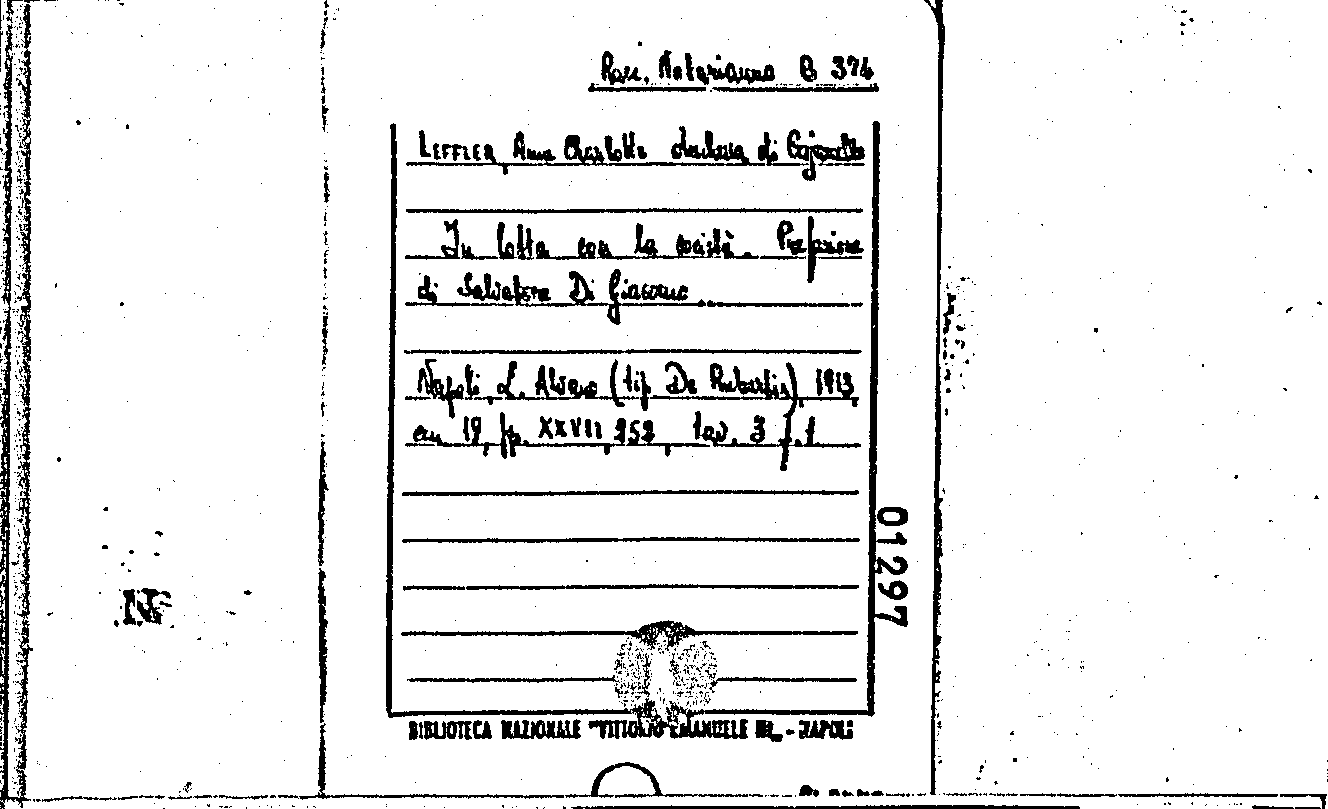 Racc. Notarianna B 374
LEFFLER, Anna Charlotte duchessa di Cajanello
In lotta con la società. Prefazione
di Salvatore Di Giacomo
Napoli, L. Alvano (tip. De Rubertis), 1913,
cm 19, pp. XXVII, 252, tav. 3 f. 1
01297
BIBLIOTECA NAZIONALE "VITTORIO EMANUELE III" - NAPOLI